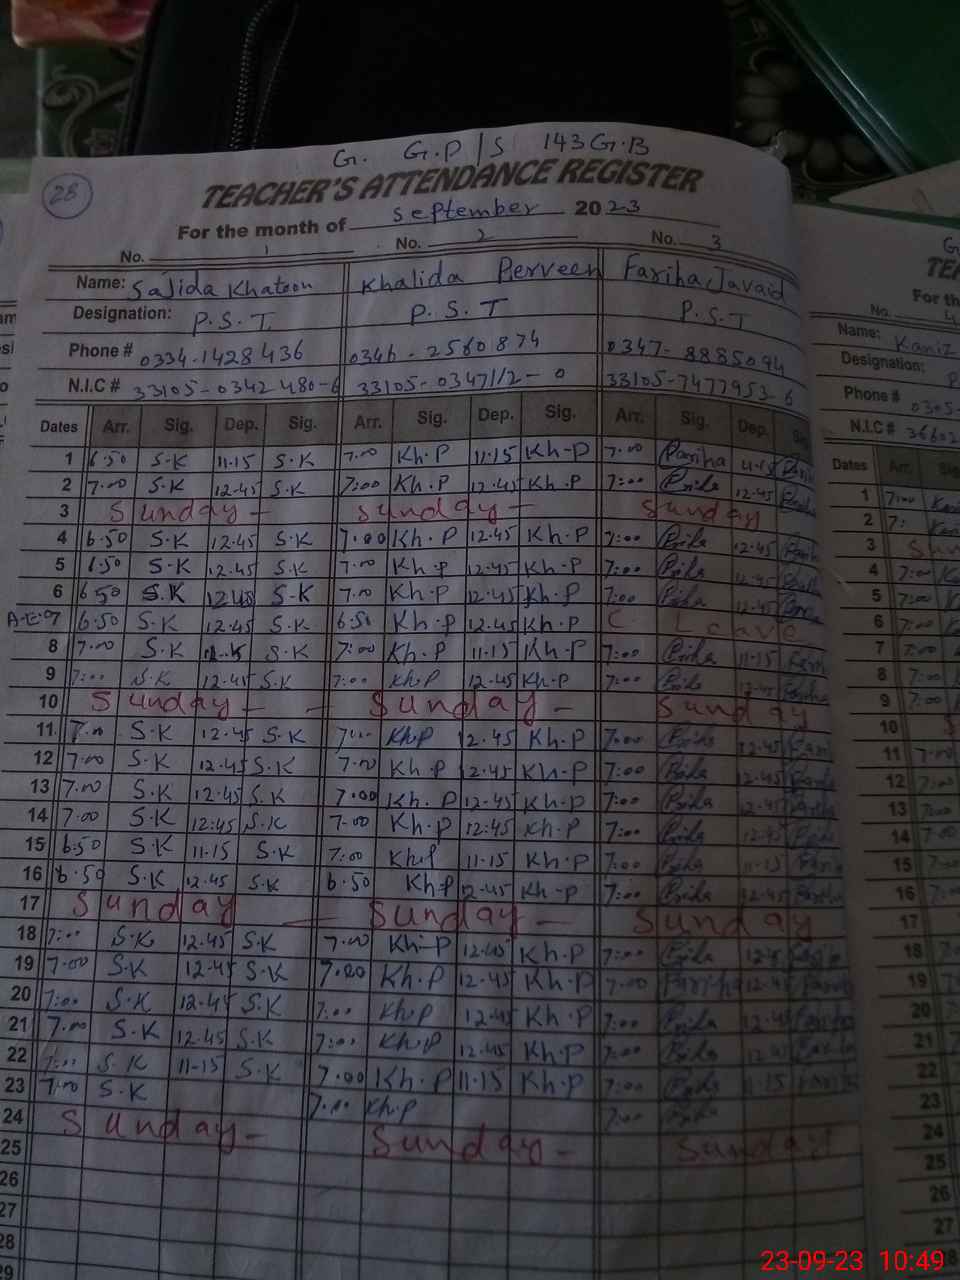 G. G.P/S 143 G.B
28
TEACHER'S ATTENDANCE REGISTER
For the month of September 2023
No. 1 No. 2 No. 3
Name: Sajida Khatoon Khalida Perveen Fariha Javaid
Designation: P.S.T. P.S.T P.S.T
Phone # 0334-1428436 0346-2560874 0347-8885094
N.I.C # 33105-0342480-6 33105-0347112-0 33105-7477953-6
Dates Arr. Sig. Dep. Sig. Arr. Sig. Dep. Sig. Arr. Sig. Dep.
1 6.50 S.K 11.15 S.K 7.00 Kh.P 11.15 Kh-P 7.00 Fariha 11.15
2 7.00 S.K 12.45 S.K 7:00 Kh.P 12.45 Kh.P 7:00 12.45
3 Sunday - Sunday - Sunday
4 6.50 S.K 12.45 S.K 7:00 Kh.P 12.45 Kh.P 7:00 12.45
5 6.50 S.K 12.45 S.K 7.00 Kh.P 12.45 Kh.P 7:00 12.45
6 6.50 S.K S.K 7.00 Kh.P 12.45 Kh.P 7:00 12.45
7 6.50 S.K 12.45 S.K 6.50 Kh.P 12.45 Kh.P C. Leave
8 7.00 S.K S.K 7:00 Kh.P 11.15 Kh.P 7:00 11.15
9 7:00 S.K 12.45 S.K 7:00 Kh.P 12.45 Kh.P 7:00 12.45
10 Sunday - - Sunday - Sunday
11 7.00 S.K 12.45 S.K 7:00 Kh.P 12.45 Kh.P 7:00 12.45
12 7.00 S.K 12.45 S.K 7.00 Kh.P 12.45 Kh.P 7:00 12.45
13 7.00 S.K 12.45 S.K 7.00 Kh.P 12.45 Kh.P 7:00 12.45
14 7.00 S.K 12:45 S.K 7.00 Kh.P 12:45 Kh.P 7:00 12.45
15 6.50 S.K 11.15 S.K 7:00 Kh.P 11.15 Kh.P 7:00 11.15
16 6.50 S.K 12.45 S.K 6.50 Kh.P 12.45 Kh.P 7:00 12.45
17 Sunday — Sunday — Sunday
18 7:00 S.K 12.45 S.K 7.00 Kh-P 12.45 Kh.P 7:00 12.45
19 7.00 S.K 12.45 S.K 7.00 Kh.P 12.45 Kh.P 7.00 Fariha 12.45
20 7:00 S.K 12.45 S.K 7:00 Kh.P 12.45 Kh.P 7:00 12.45
21 7.00 S.K 12.45 S.K 7:00 Kh.P 12.45 Kh.P 7:00 12.45
22 7:00 S.K 11-15 S.K 7.00 Kh.P 11.15 Kh.P 7:00 11.15
23 7.00 S.K 7.00 Kh.P 7:00
24 Sunday - Sunday - Sunday
25
26
27
28
29
No. 4
Name: Kaniz
Designation:
Phone # 0305-
N.I.C # 36602
Dates Arr.
1 7:00
2 7:
3
4 7:00
5 7:00
6 7:00
7 7:00
8 7:00
9 7:00
10
11 7:00
12 7:00
13 7:00
14 7:00
15
16
17
18
19
20
21
22
23
24
25
26
27
23-09-23 10:49